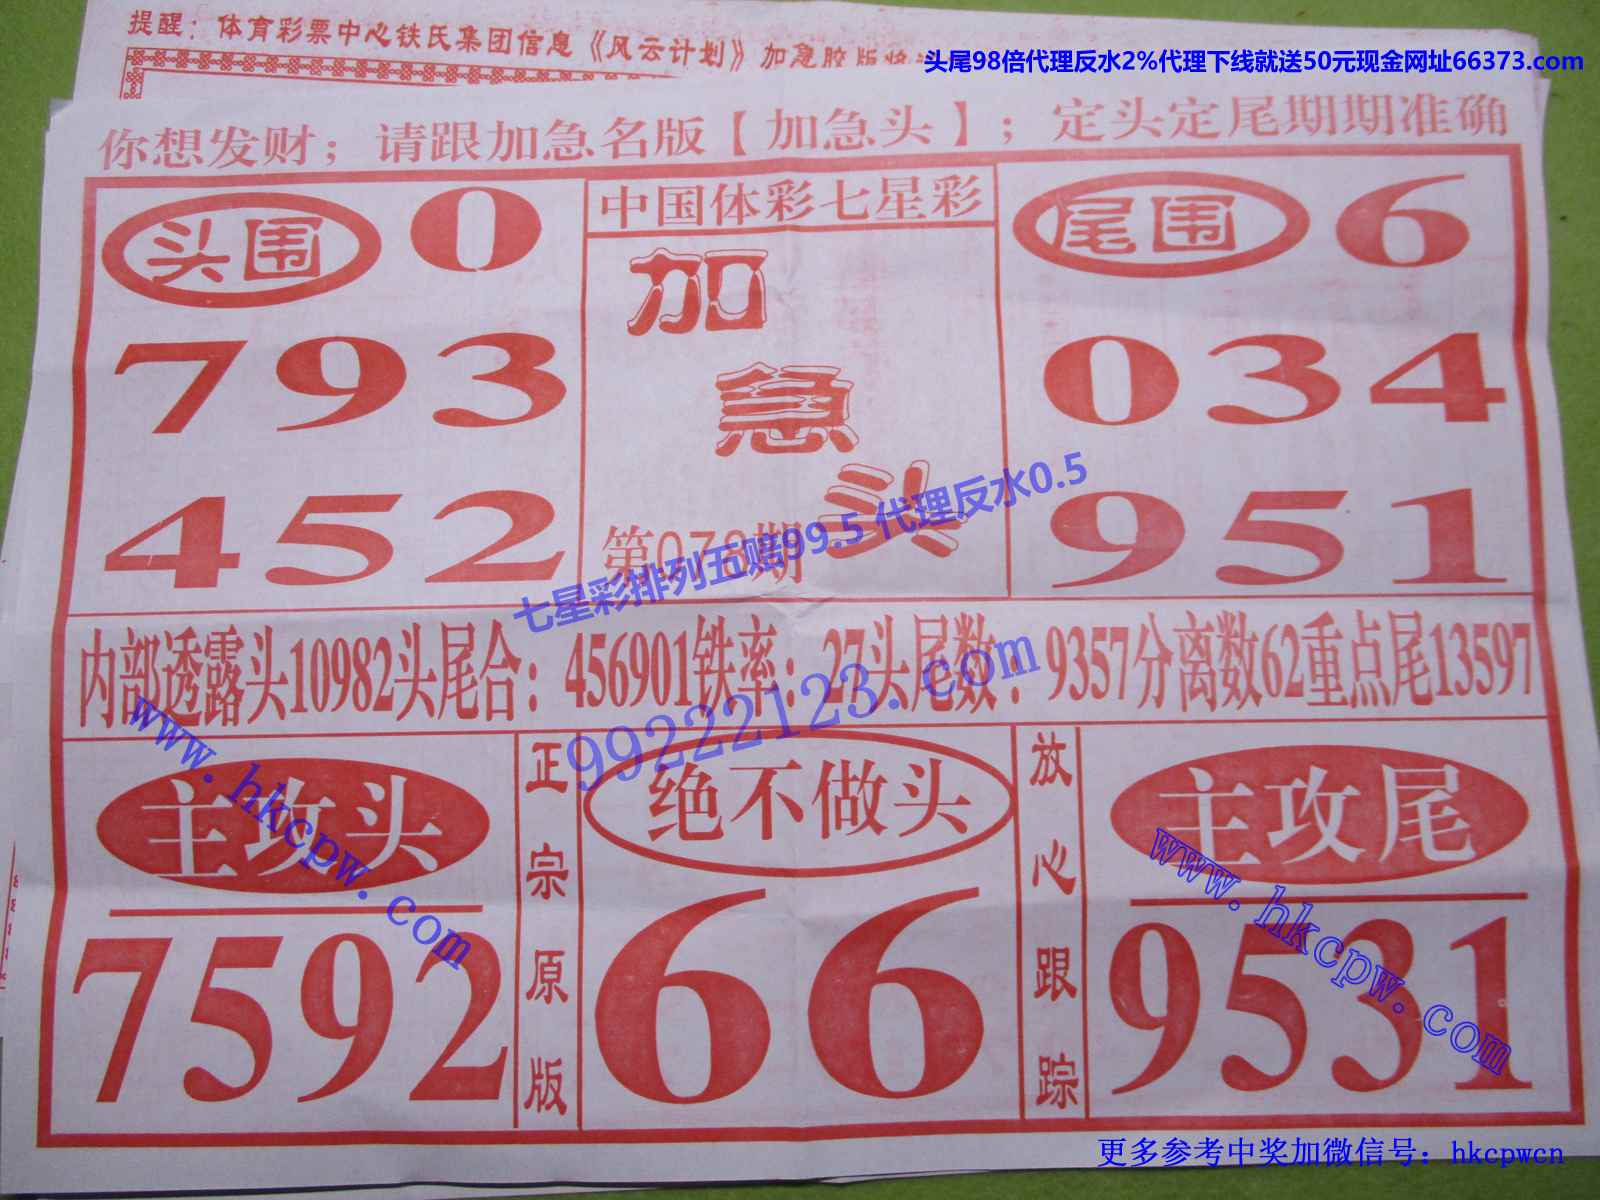 提醒：体育彩票中心铁氏集团信息《风云计划》加急胶版
头尾98倍代理反水2%代理下线就送50元现金网址66373.com
你想发财；请跟加急名版【加急头】；定头定尾期期准确
头围 0
793
452
中国体彩七星彩
加急头
第078期
尾围 6
034
951
七星彩排列五赔99.5 代理反水0.5
内部透露头10982头尾合：456901铁率：27头尾数：9357分离数62重点尾13597
99222123.com
www.hkcpw.com
主攻头
7592
正宗原版
绝不做头
66
放心跟踪
主攻尾
9531
www.hkcpw.com
更多参考中奖加微信号：hkcpwcn